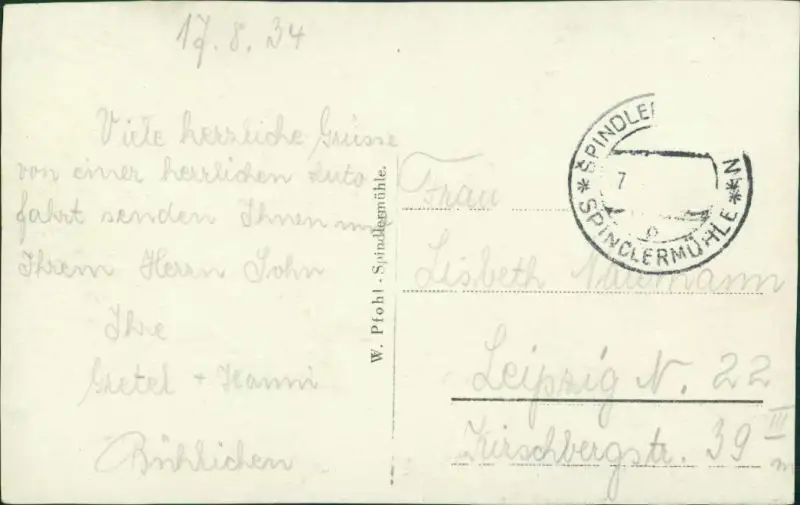 17.8.34
Viele herzliche Grüsse
von einer herrlichen Auto
fahrt senden Ihnen und
Ihrem Herrn Sohn
Ihre
Gretel + Hanni
W. Pfohl - Spindlermühle.
SPINDLE
* SPINDLERMÜHLE *
7
Frau
Lisbeth Naumann
Leipzig N. 22
Kirschbergstr. 39 III